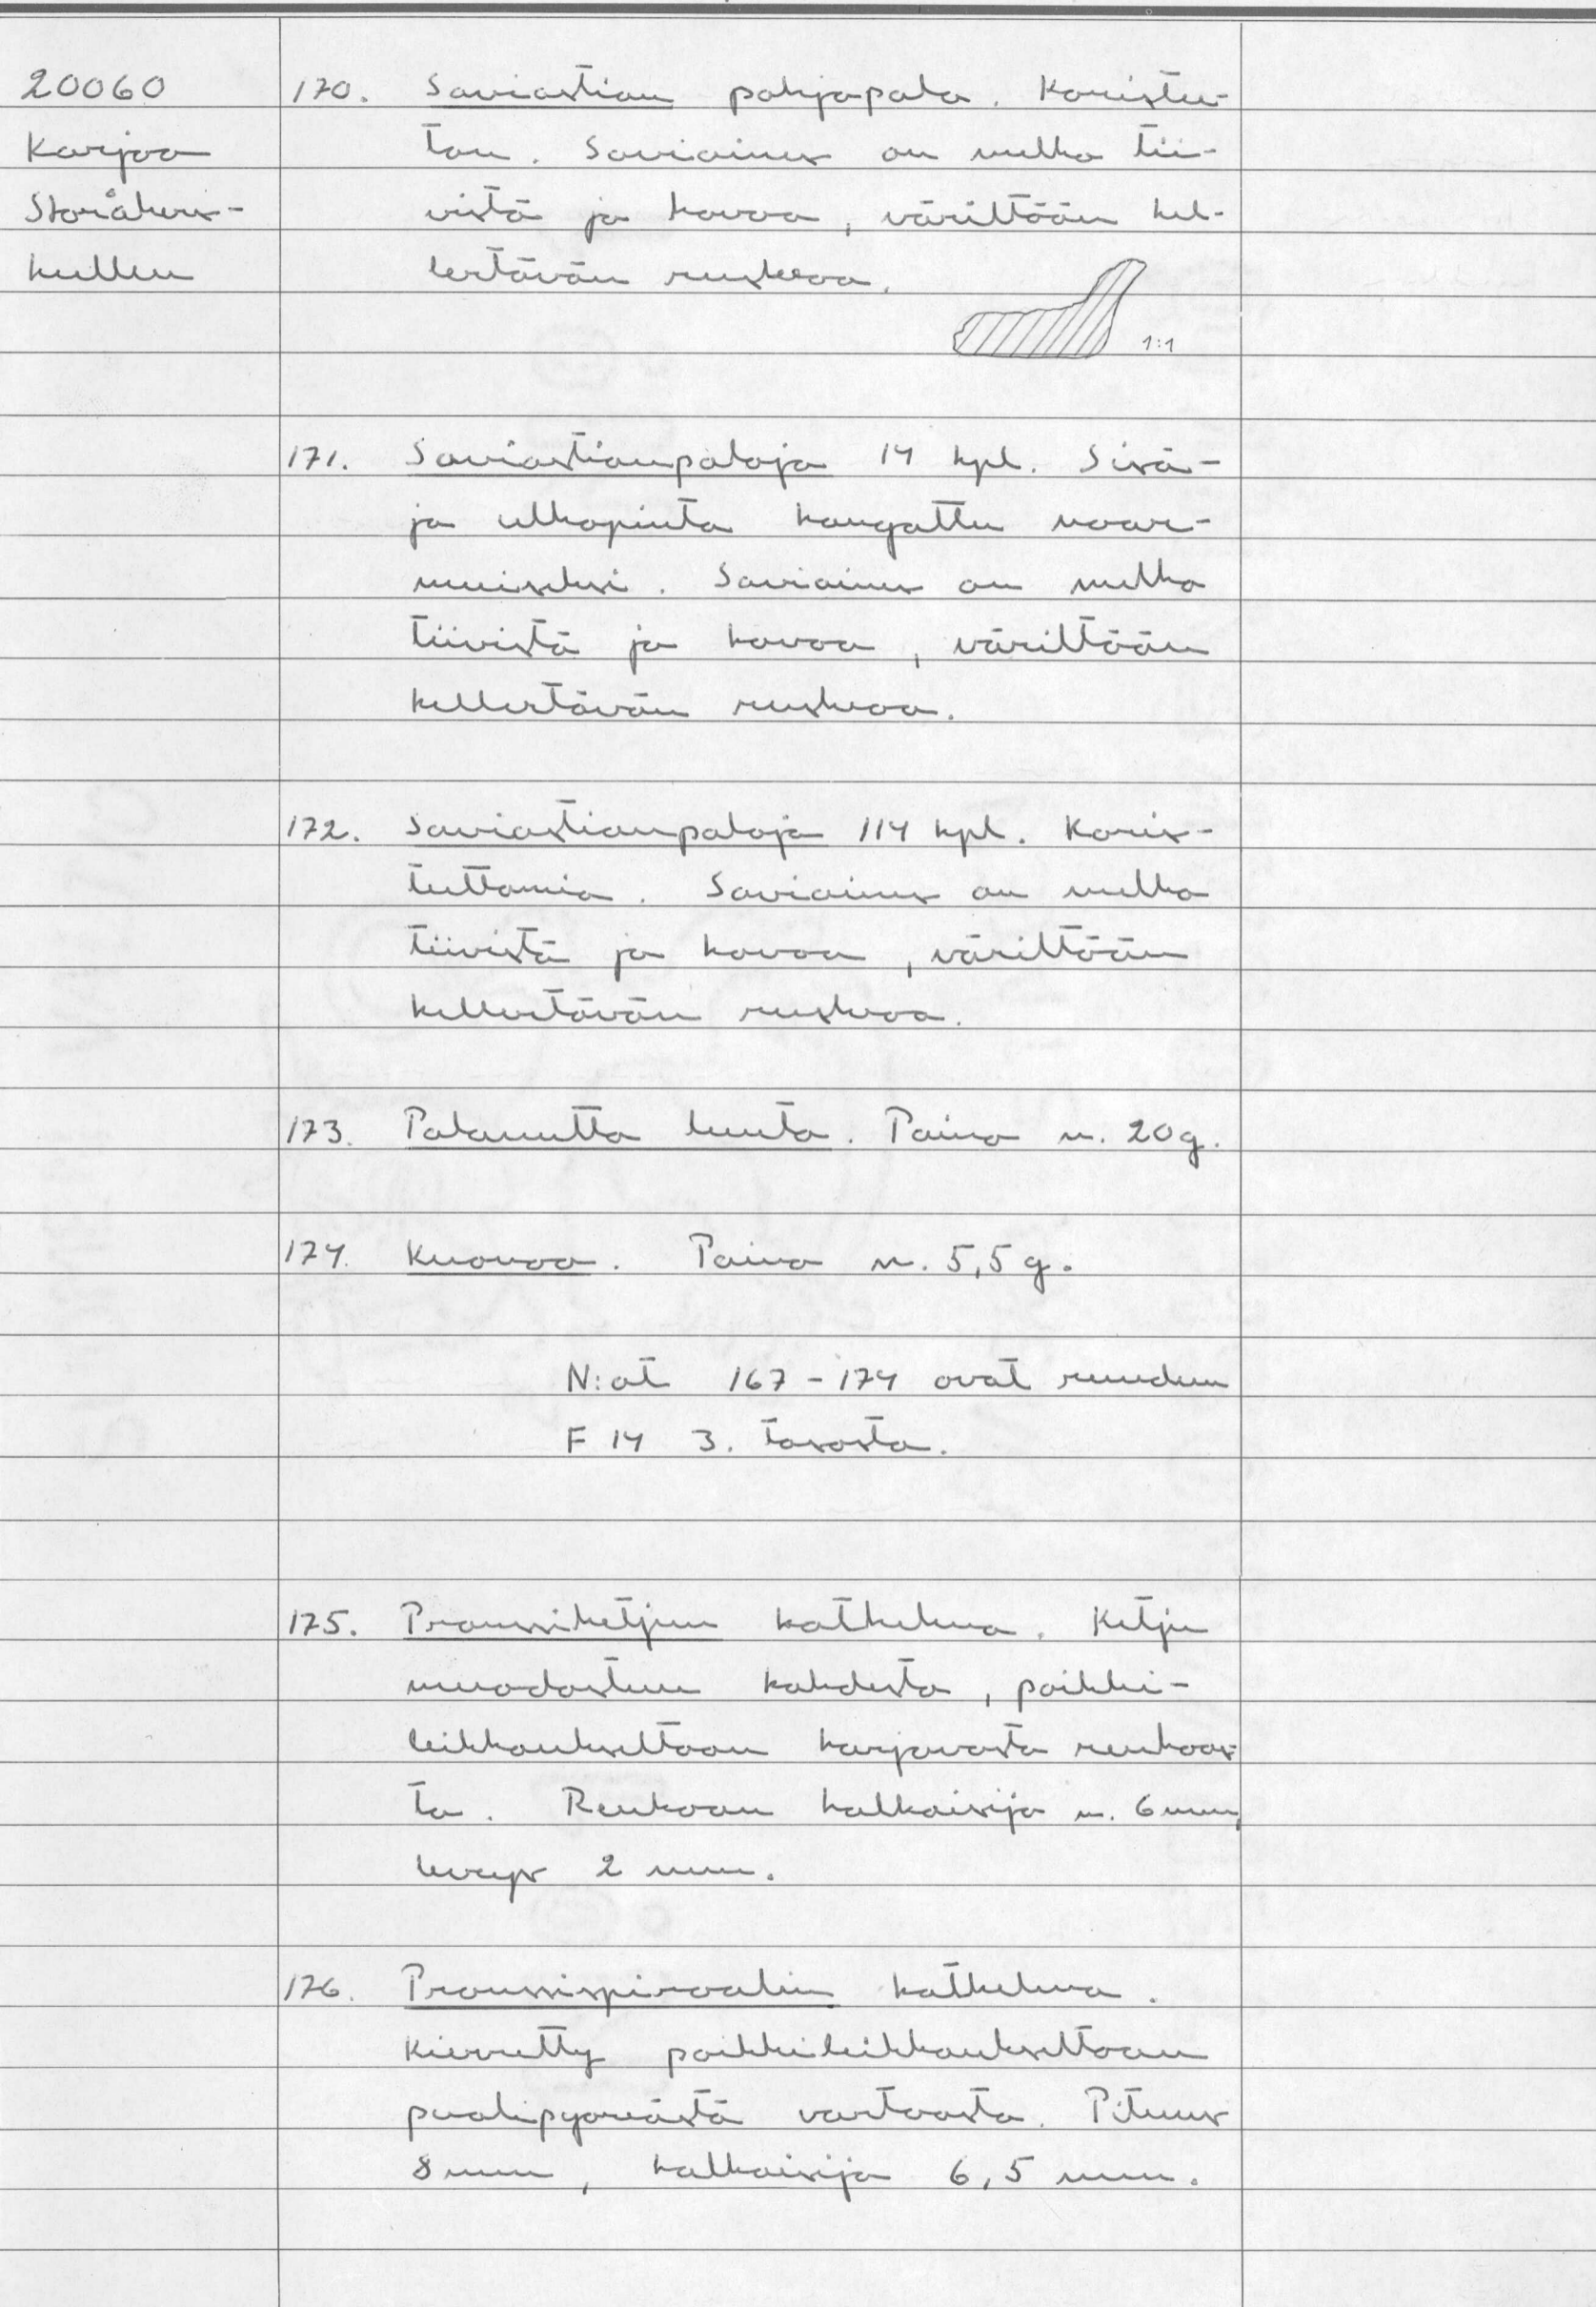 20060
Karjaa
Storåkers-
kullen
170. Saviastian pohjapala. Koristee-
ton. Saviaines on melko tii-
vistä ja kovaa, väriltään kel-
lertävän ruskeaa.
1:1
171. Saviastianpaloja 14 kpl. Sisä-
ja ulkopinta kangattu naar-
muiseksi. Saviaines on melko
tiivistä ja kovaa, väriltään
kellertävän ruskeaa.
172. Saviastianpaloja 114 kpl. Koris-
teettomia. Saviaines on melko
tiivistä ja kovaa, väriltään
kellertävän ruskeaa.
173. Palanutta luuta. Paino n. 20g.
174. Kuonaa. Paino n. 5,5 g.
N:ot 167-174 ovat ruudun
F 14 3. tasosta.
175. Pronssiketjun katkelma. Ketju
muodostuu kahdesta, poikki-
leikkaukseltaan harjavasta renkaas-
ta. Renkaan halkaisija n. 6 mm,
leveys 2 mm.
176. Pronssispiraalin katkelma.
Kierretty poikkileikkaukseltaan
puolipyöreästä vartaasta. Pituus
8 mm, halkaisija 6,5 mm.